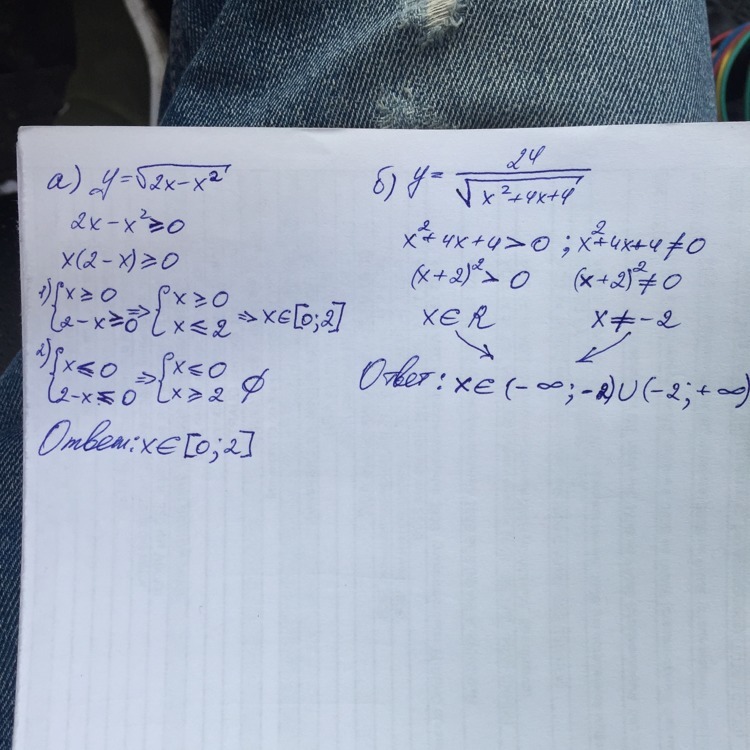 а) y=√2x-x²
2x-x²≥0
x(2-x)≥0
1) {x≥0 2-x≥0 ⇒ {x≥0 x≤2 ⇒ x∈[0;2]
2) {x≤0 2-x≤0 ⇒ {x≤0 x≥2 ∅
Ответ: x∈[0;2]
б) y= 24
√x²+4x+4
x²+4x+4>0 ; x²+4x+4≠0
(x+2)²>0 (x+2)²≠0
x∈R x≠-2
Ответ: x∈(-∞;-2)∪(-2;+∞)